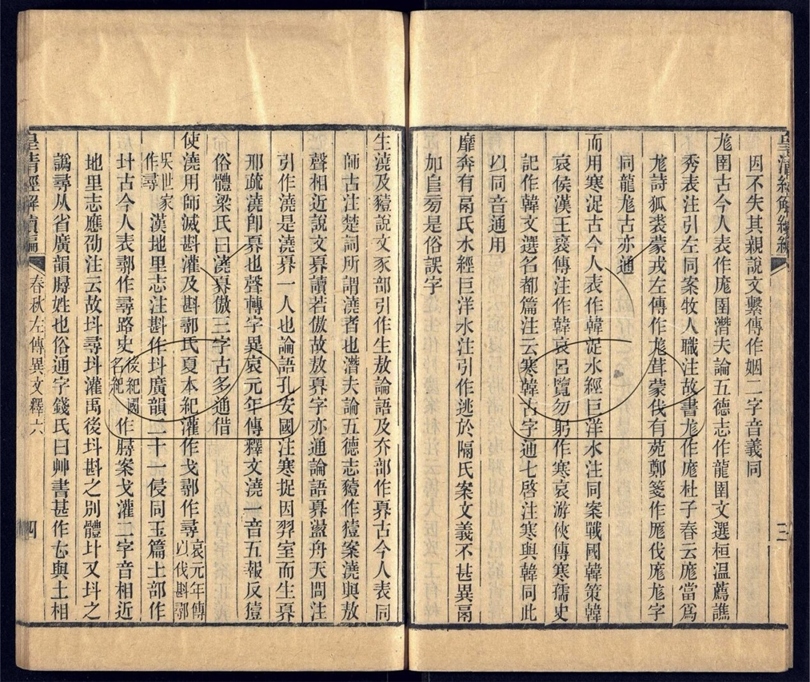 因不失其親說文繫傳作姻二字音義同
尨圉古今人表作庬圉潛夫論五德志作龍圉文選桓温薦譙
秀表注引左同案牧人職注故書尨作庬杜子春云庬當爲
尨詩狐裘蒙戎左傳作尨茸蒙伐有苑鄭箋作厖伐庬尨字
同龍尨古亦通
而用寒浞古今人表作韓浞水經巨洋水注同案戰國韓策韓
哀侯漢王襃傳注作韓哀呂覽勿躬作寒哀游俠傳寒孺史
記作韓文選名都篇注云寒韓古字通七啓注寒與韓同此
以同音通用
靡奔有鬲氏水經巨洋水注引作逃於隔氏案文義不甚異鬲
加𨸏旁是俗誤字
皇清經解續編
三
生澆及豷說文豕部引作生敖論語及夰部作奡古今人表同
師古注楚詞所謂澆者也潛夫論五德志豷作𤡬案澆與敖
聲相近說文奡讀若傲故敖奡字亦通論語奡盪舟天問注
引作澆是澆奡一人也論語孔安國注寒捉因羿室而生奡
邢疏澆卽奡也聲轉字異哀元年傳釋文澆一音五報反𤡬
俗體梁氏曰澆奡傲三字古多通借
使澆用師滅斟灌及斟鄩氏夏本紀灌作戈鄩作尋哀元年傳以伐斟鄩
吳世家作尋漢地里志注斟作㪷廣韻二十一侵同玉篇土部作
㪷古今人表鄩作尋路史後紀國名紀作㝷案戈灌二字音相近
地里志應劭注云故㪷尋㪷灌禹後㪷斟之別體㪷又㪷之
譌尋从省廣韻㝷姓也俗通字錢氏曰艸書甚作㐫與土相
皇清經解續編
春秋左傳異文釋六
四